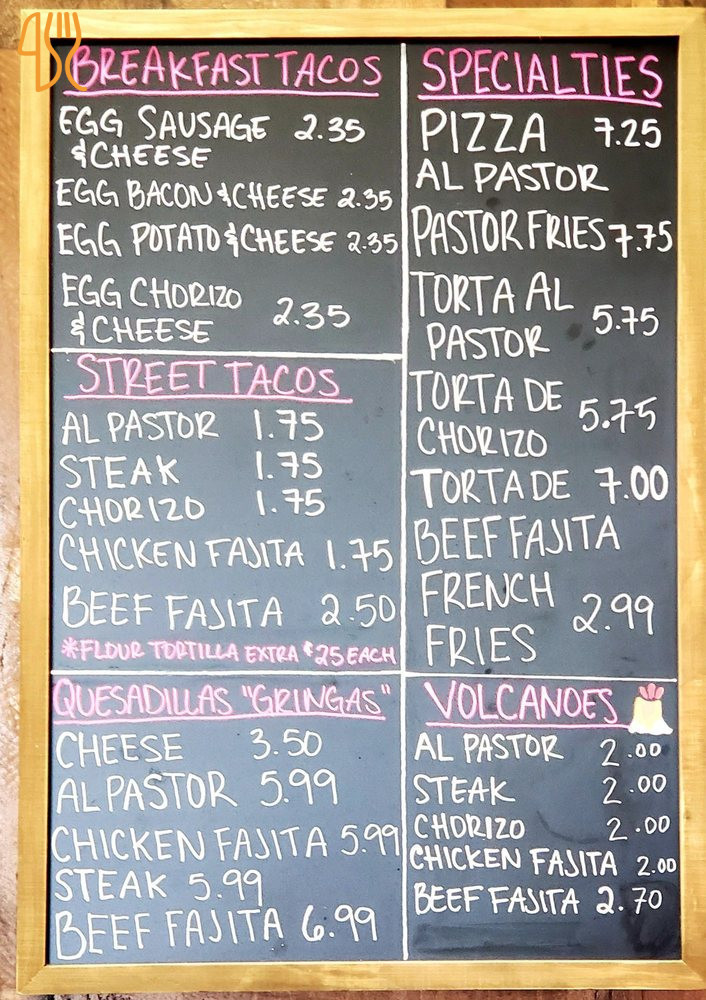 BREAKFAST TACOS
EGG SAUSAGE 2.35
& CHEESE
EGG BACON & CHEESE 2.35
EGG POTATO & CHEESE 2.35
EGG CHORIZO 2.35
& CHEESE
STREET TACOS
AL PASTOR 1.75
STEAK 1.75
CHORIZO 1.75
CHICKEN FAJITA 1.75
BEEF FAJITA 2.50
*FLOUR TORTILLA EXTRA $25 EACH
QUESADILLAS "GRINGAS"
CHEESE 3.50
AL PASTOR 5.99
CHICKEN FAJITA 5.99
STEAK 5.99
BEEF FAJITA 6.99
SPECIALTIES
PIZZA 7.25
AL PASTOR
PASTOR FRIES 7.75
TORTA AL 5.75
PASTOR
TORTA DE 5.75
CHORIZO
TORTA DE 7.00
BEEF FAJITA
FRENCH 2.99
FRIES
VOLCANOES
AL PASTOR 2.00
STEAK 2.00
CHORIZO 2.00
CHICKEN FAJITA 2.00
BEEF FAJITA 2.70